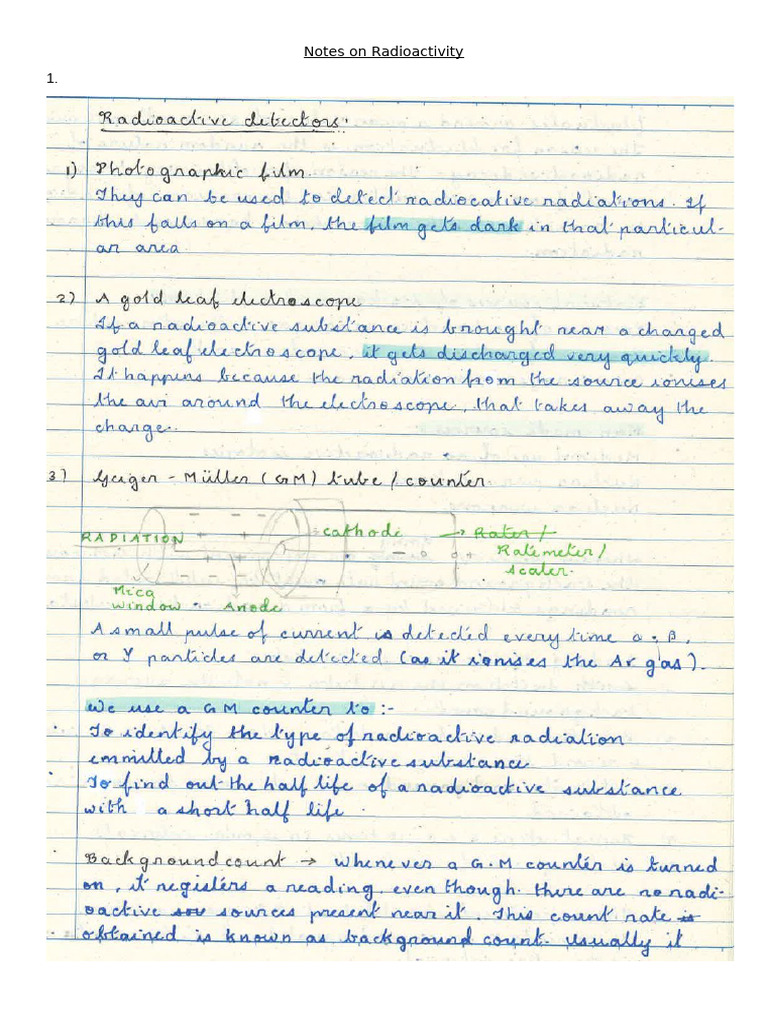 Notes on Radioactivity
1.
Radioactive detectors:
1) Photographic film.
They can be used to detect radiocative radiations. If
this falls on a film, the film gets dark in that particul-
ar area
2) A gold leaf electroscope
If a radioactive substance is brought near a charged
gold leaf electroscope, it gets discharged very quickly.
It happens because the radiation from the source ionises
the air around the electroscope, that takes away the
charge.
3) Geiger - Müller (GM) tube / counter
RADIATION
cathode → Rater /
Ratemeter /
scaler.
Mica
window
Anode
A small pulse of current is detected every time α, β,
or γ particles are detected (as it ionises the Ar gas).
We use a GM counter to :-
To identify the type of radioactive radiation
emmitted by a radioactive substance
To find out the half life of a radioactive substance
with a short half life.
Background count → whenever a G.M counter is turned
on, it registers a reading, even though there are no radi-
oactive sou sources present near it. This count rate is
obtained is known as background count. Usually it